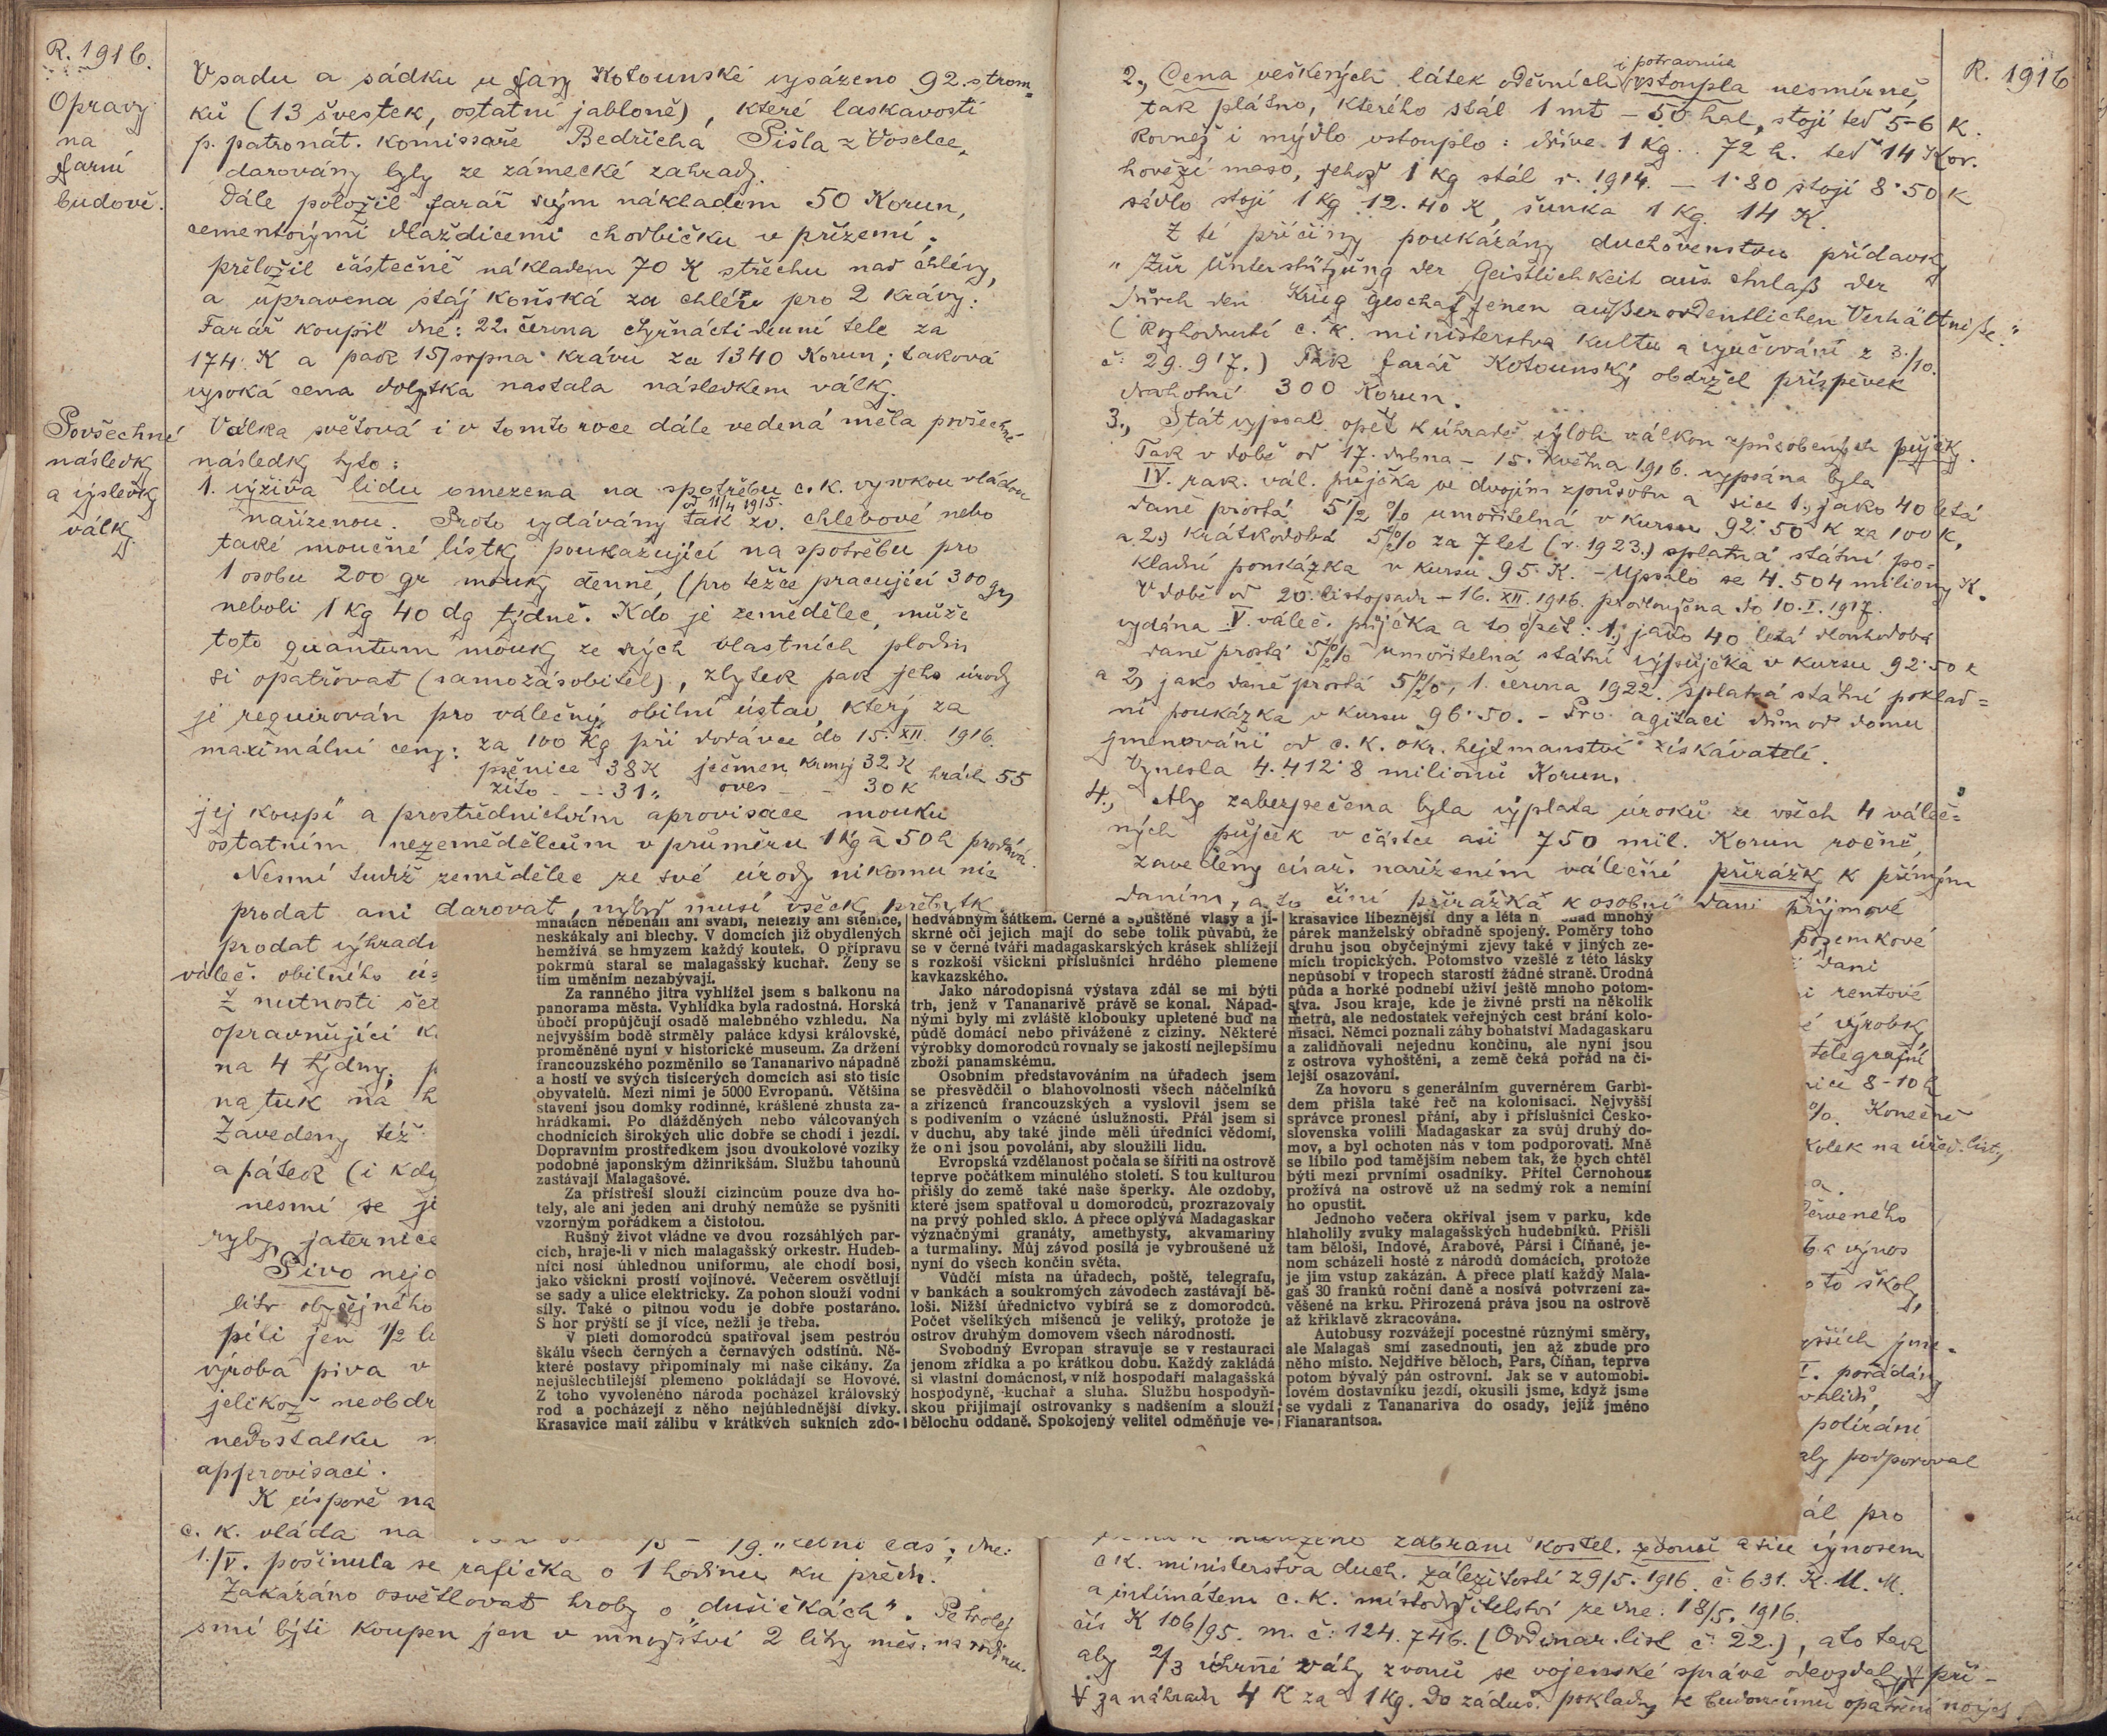 R. 1916.
Opravy
na
farní
budově.
V sadu a sádku u fary Kotounské vysázeno 92. strom=
ků (13 švestek, ostatní jabloně), které laskavostí
p. patronát. komissaře Bedřicha Pišla z Voselce,
darovány byly ze zámecké zahrady.
Dále položil farář svým nákladem 50 Korun,
cementovými dlaždicemi chodbičku v přízemí;
přeložil částečně nákladem 70 K střechu nad chlévy,
a upravena stáj koňská za chlév pro 2 krávy.
Farář koupil dne: 22. června čtrnáctidenní tele za
174 K a pak 15/srpna krávu za 1340 Korun; taková
vysoká cena dobytka nastala následkem války.
Povšechné
následky
a výsledky
války
Válka světová i v tomto roce dále vedená měla povšechné
následky tyto:
1. výživa lidu omezena na spotřebu c. k. vysokou vládou
od 11/4 1915.
nařízenou. Proto vydávány tak zv. chlebové nebo
také moučné lístky poukazující na spotřebu pro
1 osobu 200 gr mouky denně, (pro těžce pracující 300 gr)
neboli 1 kg 40 dg týdně. Kdo je zemědělec, může
toto quantum mouky ze svých vlastních plodin
si opatřovat (samozásobitel), zbytek pak jeho úrody
je requirován pro válečný obilní ústav, který za
maximální ceny: za 100 kg při dodávce do 15. XII. 1916.
pšenice 38 K ječmen krmný 32 K hrách 55
žito - - 31 „ oves - - 30 K
jej koupí a prostřednictvím aprovisace mouku
ostatním nezemědělcům v průměru 1 kg à 50 h prodává.
Nesmí tudíž zemědělec ze své úrody nikomu nic
prodat ani darovat, nýbrž musí všecky přebytky
prodat výhradn
váleč. obilního ús
Z nutnosti šet
opravňující k
na 4 týdny, p
na tuk na h
Zavedeny též
a pátek (i kdy
nesmí se j
ryby, jaternice
Pivo nejo
litr obyčejného
píti jen 1/2 l
výroba piva v
jelikož neobdr
nedostatku n
approvisaci.
K úspoře na
c. k. vláda na 19. „letní čas; dne:
1./V. pošinula se rafička o 1 hodinu ku předu.
Zakázáno osvětlovat hroby o „dušičkách". Petrolej
smí býti koupen jen v množství 2 litry měs. na rodinu.
mnatách neběhali ani švábi, nelezly ani štěnice,
neskákaly ani blechy. V domcích již obydlených
hemživá se hmyzem každý koutek. O přípravu
pokrmů staral se malagašský kuchař. Ženy se
tím uměním nezabývají.
Za ranného jitra vyhlížel jsem s balkonu na
panorama města. Vyhlídka byla radostná. Horská
úbočí propůjčují osadě malebného vzhledu. Na
nejvyšším bodě strměly paláce kdysi královské,
proměněné nyní v historické museum. Za držení
francouzského pozměnilo se Tananarivo nápadně
a hostí ve svých tisícerých domcích asi sto tisíc
obyvatelů. Mezi nimi je 5000 Evropanů. Většina
stavení jsou domky rodinné, krášlené zhusta za-
hrádkami. Po dlážděných nebo válcovaných
chodnících širokých ulic dobře se chodí i jezdí.
Dopravním prostředkem jsou dvoukolové vozíky
podobné japonským džinrikšám. Službu tahounů
zastávají Malagašové.
Za přístřeší slouží cizincům pouze dva ho-
tely, ale ani jeden ani druhý nemůže se pyšniti
vzorným pořádkem a čistotou.
Rušný život vládne ve dvou rozsáhlých par-
cích, hraje-li v nich malagašský orkestr. Hudeb-
níci nosí úhlednou uniformu, ale chodí bosí,
jako všickni prostí vojínové. Večerem osvětlují
se sady a ulice elektricky. Za pohon slouží vodní
síly. Také o pitnou vodu je dobře postaráno.
S hor prýští se jí více, nežli je třeba.
V pleti domorodců spatřoval jsem pestrou
škálu všech černých a černavých odstínů. Ně-
které postavy připomínaly mi naše cikány. Za
nejušlechtilejší plemeno pokládají se Hovové.
Z toho vyvoleného národa pocházel královský
rod a pocházejí z něho nejúhlednější dívky.
Krasavice mají zálibu v krátkých sukních zdo-
hedvábným šátkem. Černé a spuštěné vlasy a ji-
skrné oči jejich mají do sebe tolik půvabů, že
se v černé tváři madagaskarských krásek shlížejí
s rozkoší všickni příslušníci hrdého plemene
kavkazského.
Jako národopisná výstava zdál se mi býti
trh, jenž v Tananarivě právě se konal. Nápad-
nými byly mi zvláště klobouky upletené buď na
půdě domácí nebo přivážené z ciziny. Některé
výrobky domorodců rovnaly se jakostí nejlepšímu
zboží panamskému.
Osobním představováním na úřadech jsem
se přesvědčil o blahovolnosti všech náčelníků
a zřízenců francouzských a vyslovil jsem se
s podivením o vzácné úslužnosti. Přál jsem si
v duchu, aby také jinde měli úředníci vědomí,
že oni jsou povoláni, aby sloužili lidu.
Evropská vzdělanost počala se šířiti na ostrově
teprve počátkem minulého století. S tou kulturou
přišly do země také naše šperky. Ale ozdoby,
které jsem spatřoval u domorodců, prozrazovaly
na prvý pohled sklo. A přece oplývá Madagaskar
význačnými granáty, amethysty, akvamariny
a turmaliny. Můj závod posílá je vybroušené už
nyní do všech končin světa.
Vůdčí místa na úřadech, poště, telegrafu,
v bankách a soukromých závodech zastávají bě-
loši. Nižší úřednictvo vybírá se z domorodců.
Počet všelikých míšenců je veliký, protože je
ostrov druhým domovem všech národností.
Svobodný Evropan stravuje se v restauraci
jenom zřídka a po krátkou dobu. Každý zakládá
si vlastní domácnost, v níž hospodaří malagašská
hospodyně, kuchař a sluha. Službu hospodyň-
skou přijímají ostrovanky s nadšením a slouží
bělochu oddaně. Spokojený velitel odměňuje ve-
krasavice líbeznější dny a léta n snad mnohý
párek manželský obřadně spojený. Poměry toho
druhu jsou obyčejnými zjevy také v jiných ze-
mích tropických. Potomstvo vzešlé z této lásky
nepůsobí v tropech starostí žádné straně. Úrodná
půda a horké podnebí uživí ještě mnoho potom-
stva. Jsou kraje, kde je živné prsti na několik
metrů, ale nedostatek veřejných cest brání kolo-
nisaci. Němci poznali záhy bohatství Madagaskaru
a zalidňovali nejednu končinu, ale nyní jsou
z ostrova vyhoštěni, a země čeká pořád na či-
lejší osazování.
Za hovoru s generálním guvernérem Garbi-
dem přišla také řeč na kolonisaci. Nejvyšší
správce pronesl přání, aby i příslušníci Česko-
slovenska volili Madagaskar za svůj druhý do-
mov, a byl ochoten nás v tom podporovati. Mně
se líbilo pod tamějším nebem tak, že bych chtěl
býti mezi prvními osadníky. Přítel Černohouz
prožívá na ostrově už na sedmý rok a nemíní
ho opustit.
Jednoho večera okříval jsem v parku, kde
hlaholily zvuky malagašských hudebníků. Přišli
tam běloši, Indové, Arabové, Pársi i Číňané, je-
nom scházeli hosté z národů domácích, protože
je jim vstup zakázán. A přece platí každý Mala-
gaš 30 franků roční daně a nosívá potvrzení za-
věšené na krku. Přirozená práva jsou na ostrově
až křiklavě zkracována.
Autobusy rozvážejí pocestné různými směry,
ale Malagaš smí zasednouti, jen až zbude pro
něho místo. Nejdříve běloch, Pars, Číňan, teprve
potom bývalý pán ostrovní. Jak se v automobi-
lovém dostavníku jezdí, okusili jsme, když jsme
se vydali z Tananariva do osady, jejíž jméno
Fianarantsoa.
R. 1916
i potravnin
2., Cena veškerých látek oděvních vstoupla nesmírně,
tak plátno, kterého stál 1 mt – 50 hal, stojí teď 5-6 K.
Rovněž i mýdlo vstouplo: dříve 1 kg. . 72 h. teď 14 Kor.
hovězí maso, jehož 1 kg stál r. 1914. – 1·80 stojí 8·50 K
sádlo stojí 1 kg 12·40 K, šunka 1 kg. 14 K.
Z té příčiny poukázány duchovenstvu přídavky
„Zur Unterstützung der Geistlichkeit aus Anlaß der
durch den Krieg geschaffenen außerordentlichen Verhältniße."
(Rozhodnutí c. k. ministerstva kultu a vyučování z 3./10.
č: 29.917.) Pak farář Kotounský obdržel příspěvek
drahotní 300 Korun.
3., Stát vypsal opět k úhradě výloh válkou způsobených půjčky.
Tak v době od 17. dubna – 15. května 1916. vypsána byla
IV. rak. vál. půjčka ve dvojím způsobu a sice 1., jako 40 letá
daně prostá 5 1/2 % umořitelná v kursu 92·50 K za 100 K,
a 2.) krátkodobá 5 1/2% za 7 let (r. 1923.) splatná státní po=
kladní poukázka v kursu 95 K. – Upsalo se 4.504 miliony K.
V době od 20. listopadu – 16. XII. 1916. prodloužena do 10. I. 1917.
vydána V. váleč. půjčka a to opět: 1., jako 40 letá dlouhodobá
daně prostá 5 1/2% umořitelná státní výpůjčka v kursu 92·50 K
a 2, jako daně prostá 5 1/2%, 1. června 1922. splatná státní poklad=
ní poukázka v kursu 96·50. – Pro agitaci dům od domu
jmenováni od c. k. okr. hejtmanství získávatelé.
Vynesla 4.412·8 milionů Korun.
4., Aby zabezpečena byla výplata úroků ze všech 4 váleč=
ných půjček v částce asi 750 mil. Korun ročně,
zavedeny císař. nařízením válečné přirážky k přímým
daním, a to činí přirážka k osobní dani příjmové
pozemkové
dani
i rentové
é výrobky
telegrafní
nice 8-10 h
%. Konečně
kolek na úřed. list,
a.
Červeného
b a výnos
o to školy,
vyšších jme-
I. pořádány
polírání
aly podporoval
ál pro
nařízeno zabrání kostel. zvonů a sice výnosem
c k. ministerstva duch. záležitostí 29/5. 1916. č: 631. K. U. M.
a intimátem c. k. místodržitelství ze dne: 18/5. 1916.
čís K 106/95. m. č: 124.746. (Ordinar. list č: 22.), a to tak
aby 2/3 úhrnné váhy zvonů se vojenské správě odevzdaly při-
za náhradu 4 K za 1 kg. Do záduš. pokladny k budoucímu opatření nových.